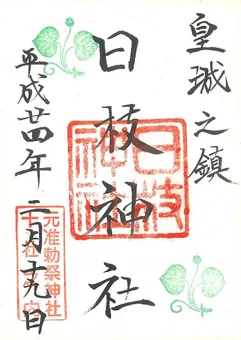 皇城之鎮
日枝神社
日枝神社
平成廿四年二月十九日
元准勅祭神社
十社之内